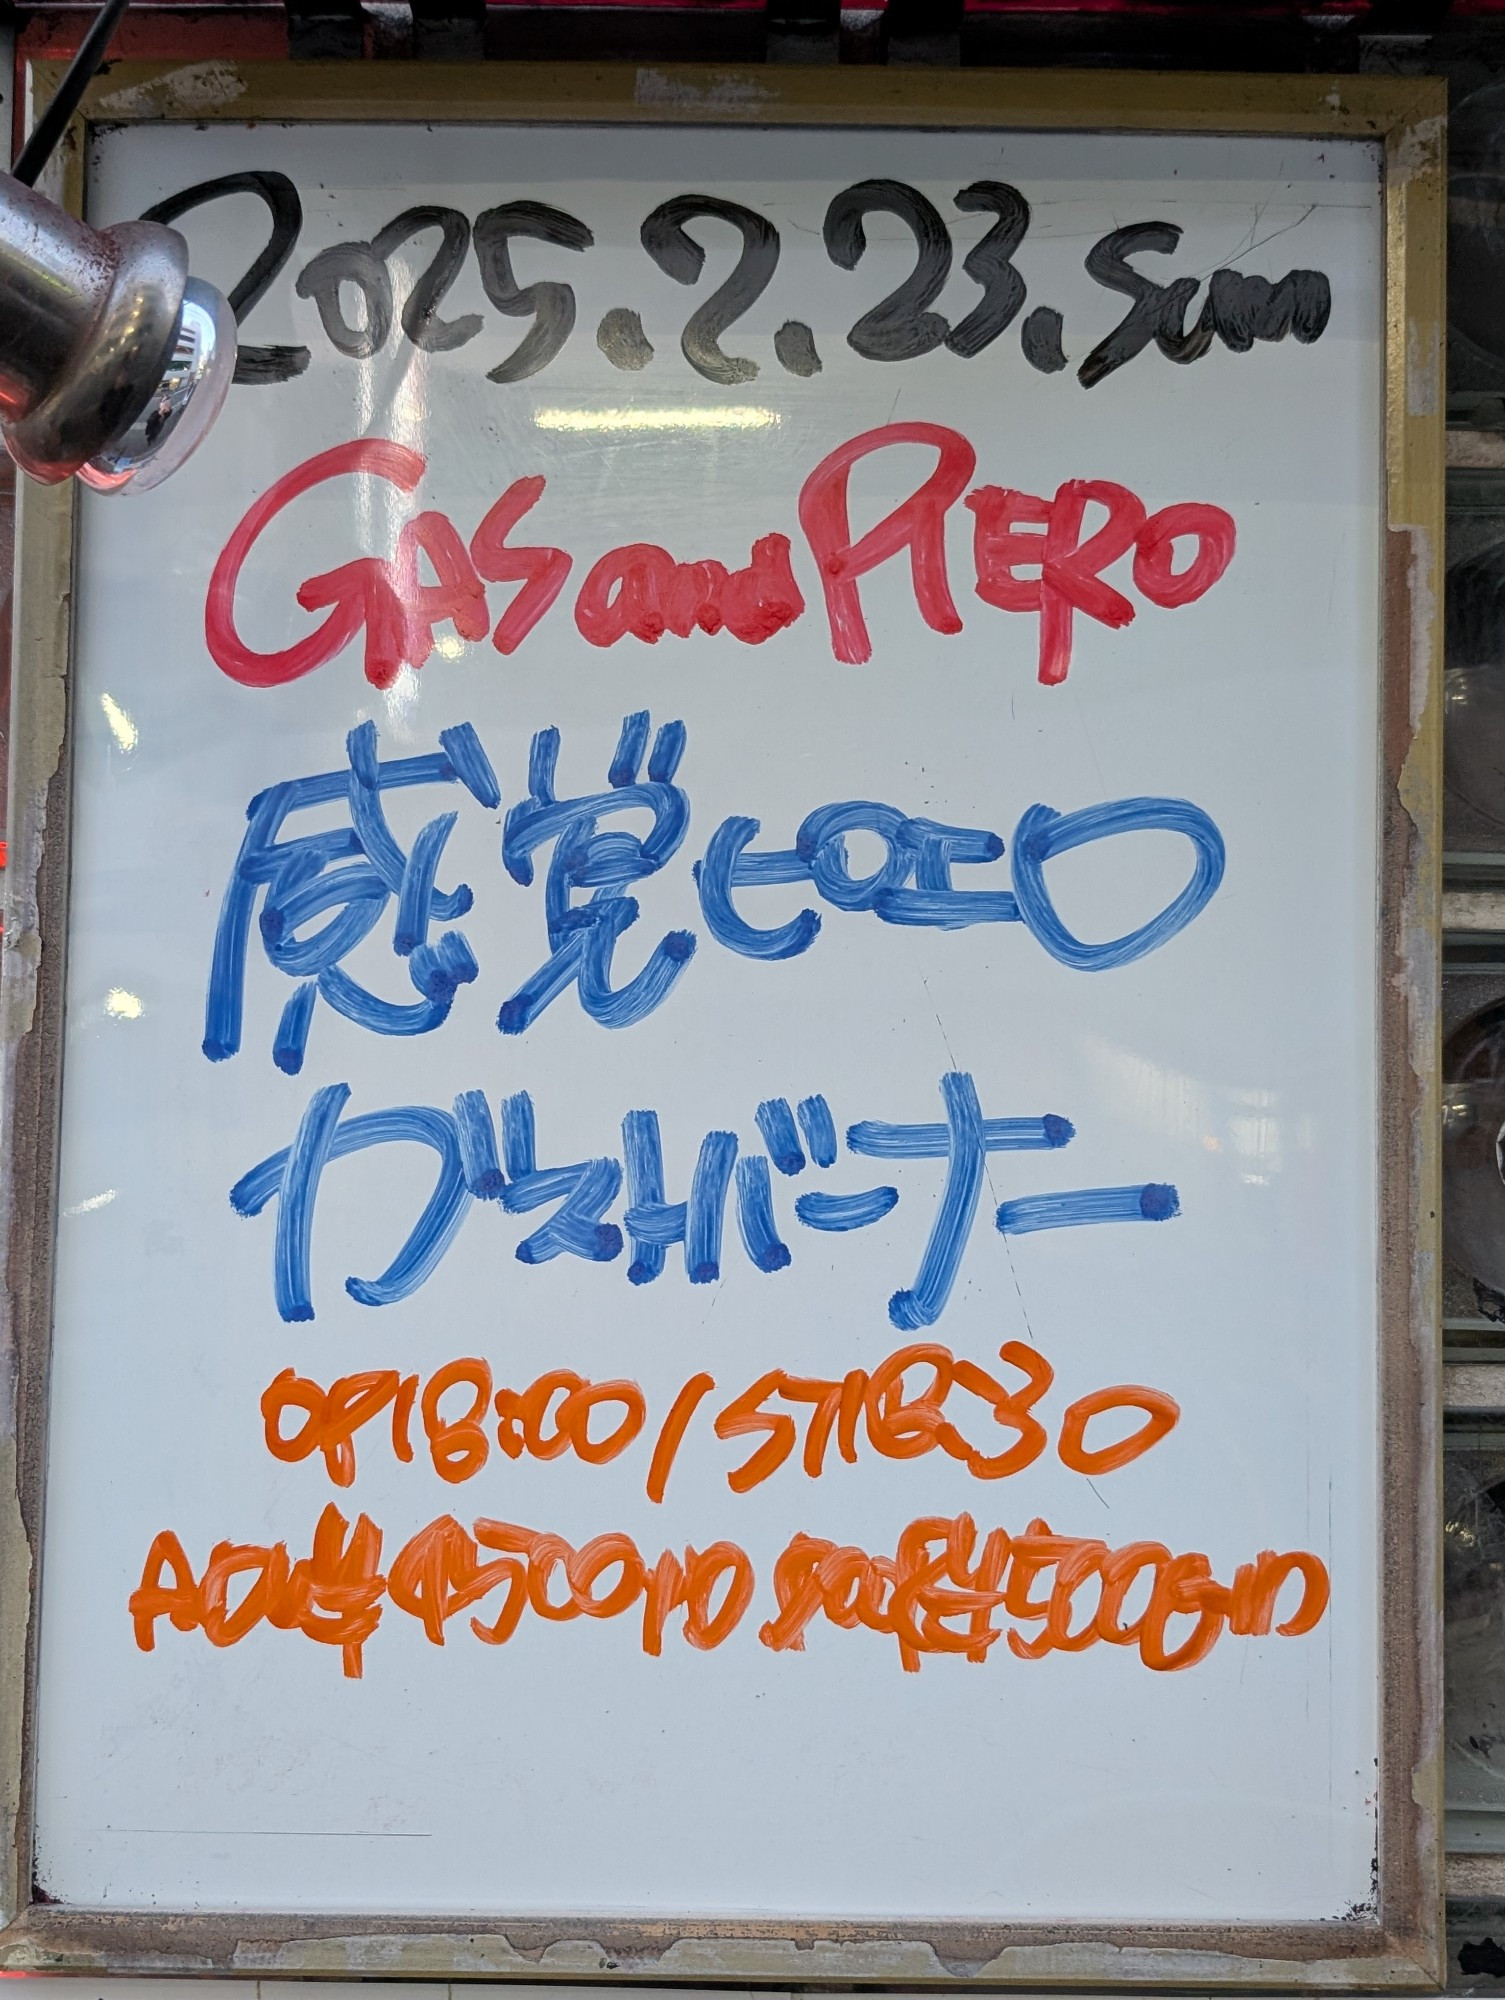 2025.2.23.sun
GAS and PIERO
感覚ピエロ
ガストバーナー
OP18:00/ST18:30
ADV ¥4500+1D ¥5000+1D